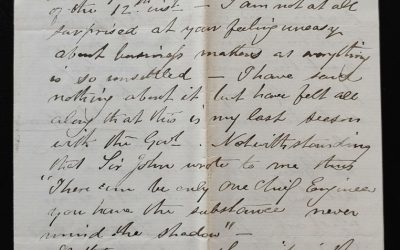 of the 12th inst — I am not at all
surprised at your feeling uneasy
about business matters as everything
is so unsettled — I have said
nothing about it but have felt all
along that this is my last season
with the Govt. Notwithstanding
that Sir John wrote to me thus
"There can be only one Chief Engineer
you have the substance never
mind the shadow" —